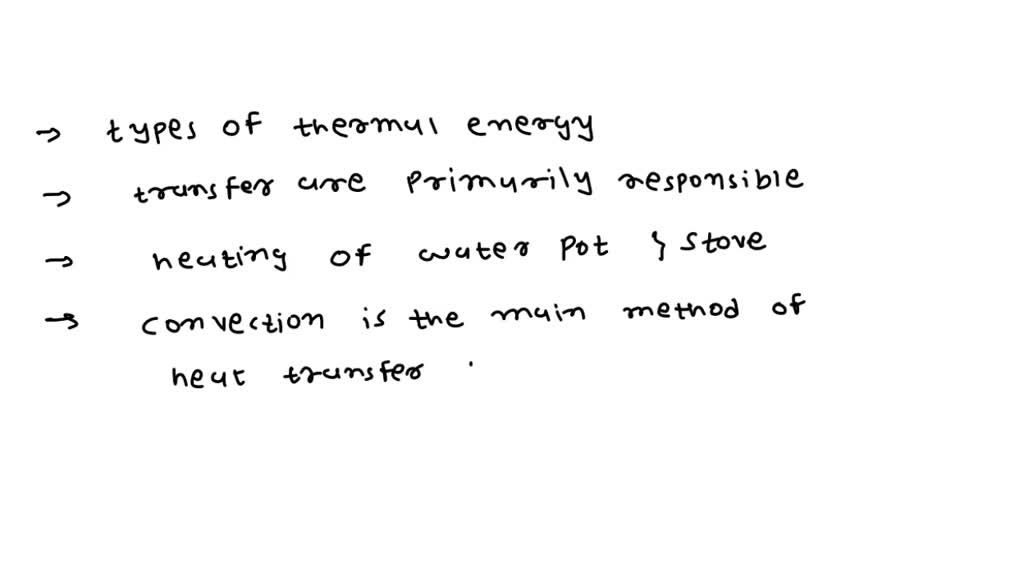 → types of thermal energy
→ transfer are primarily responsible
→ heating of water pot & stove
→ convection is the main method of
heat transfer .